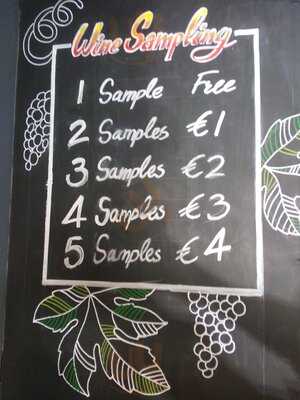 Wine Sampling
1 Sample Free
2 Samples €1
3 Samples €2
4 Samples €3
5 Samples €4